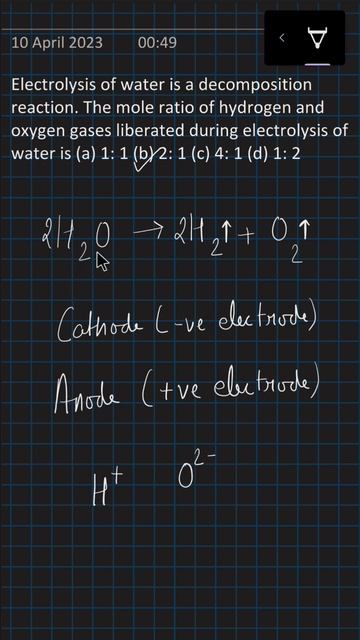 10 April 2023 00:49
Electrolysis of water is a decomposition
reaction. The mole ratio of hydrogen and
oxygen gases liberated during electrolysis of
water is (a) 1: 1 (b) 2: 1 (c) 4: 1 (d) 1: 2
2H₂O → 2H₂↑ + O₂↑
Cathode (-ve electrode)
Anode (+ve electrode)
H⁺ O²⁻